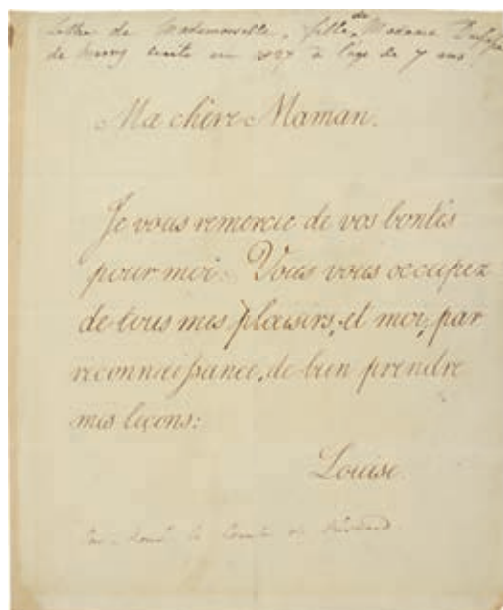 Lettre de Mademoiselle, fille de Madame
de Berry écrite en 1827 à l'âge de 7 ans.
Ma chère Maman.
Je vous remercie de vos bontés
pour moi. Vous vous occupez
de tous mes plaisirs, et moi, par
reconnoissance, de bien prendre
mes leçons:
Louise.
le Comte de